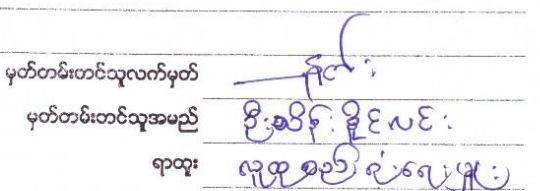 မှတ်တမ်းတင်သူလက်မှတ်
မှတ်တမ်းတင်သူအမည် ဦးသိန်းနိုင်လင်း
ရာထူး လူထုစည်းရုံးရေးမှူး